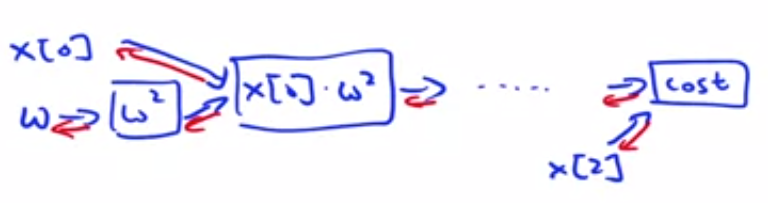 x[0]
w
w²
x[0]·w²
.....
cost
x[2]